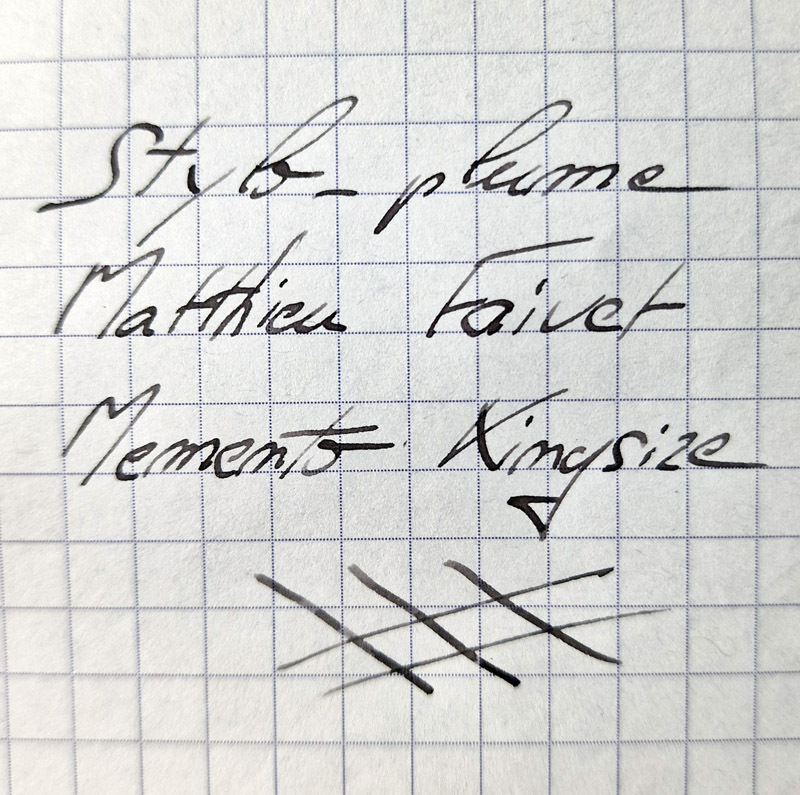 Stylo-plume
Matthieu Faivet
Memento Kingsize